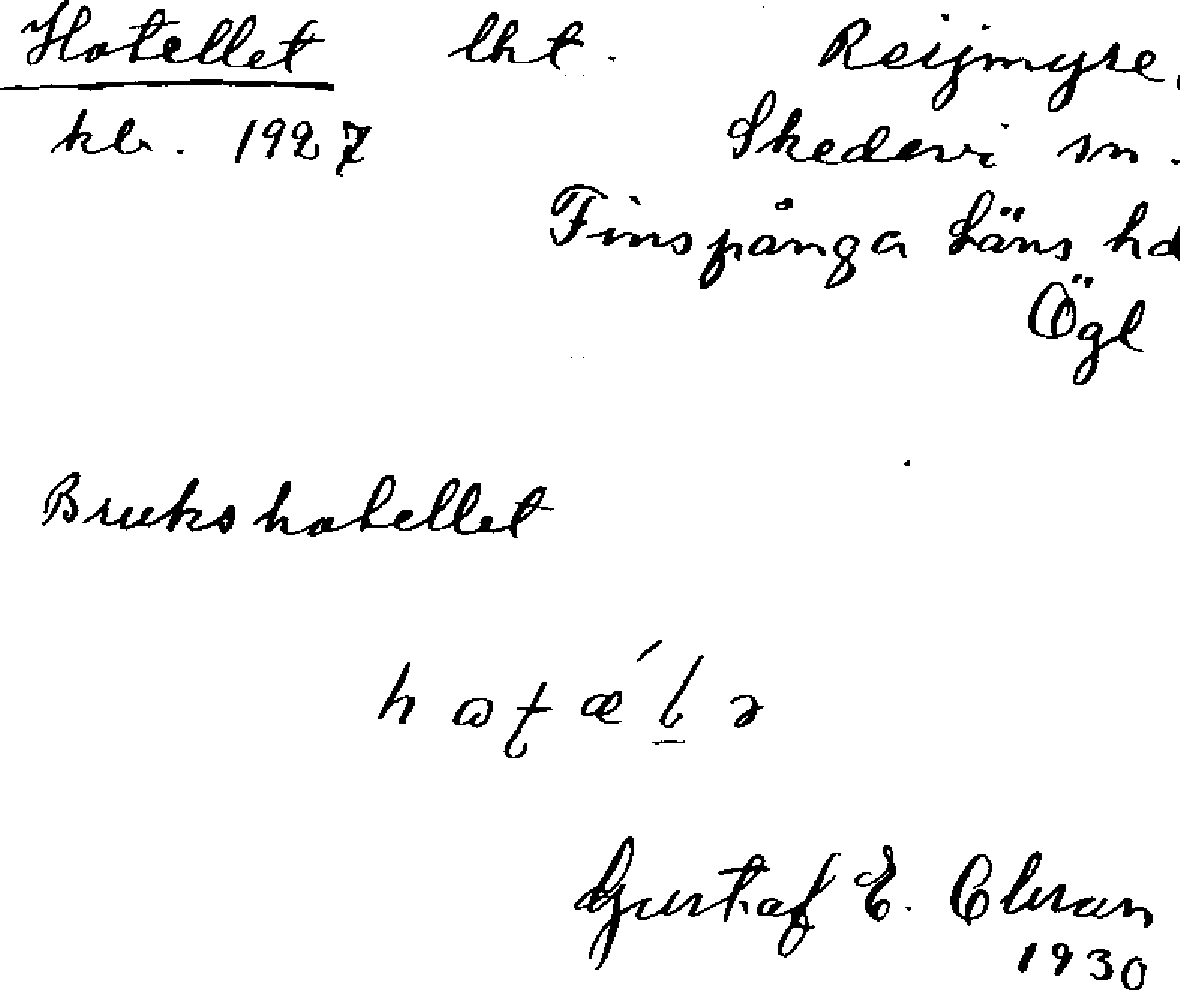 Hotellet lht. Reijmyre,
kb. 1927 Skedevi sn.
Finspånga läns hd
Ögl
Brukshotellet
Gustaf E.
1930